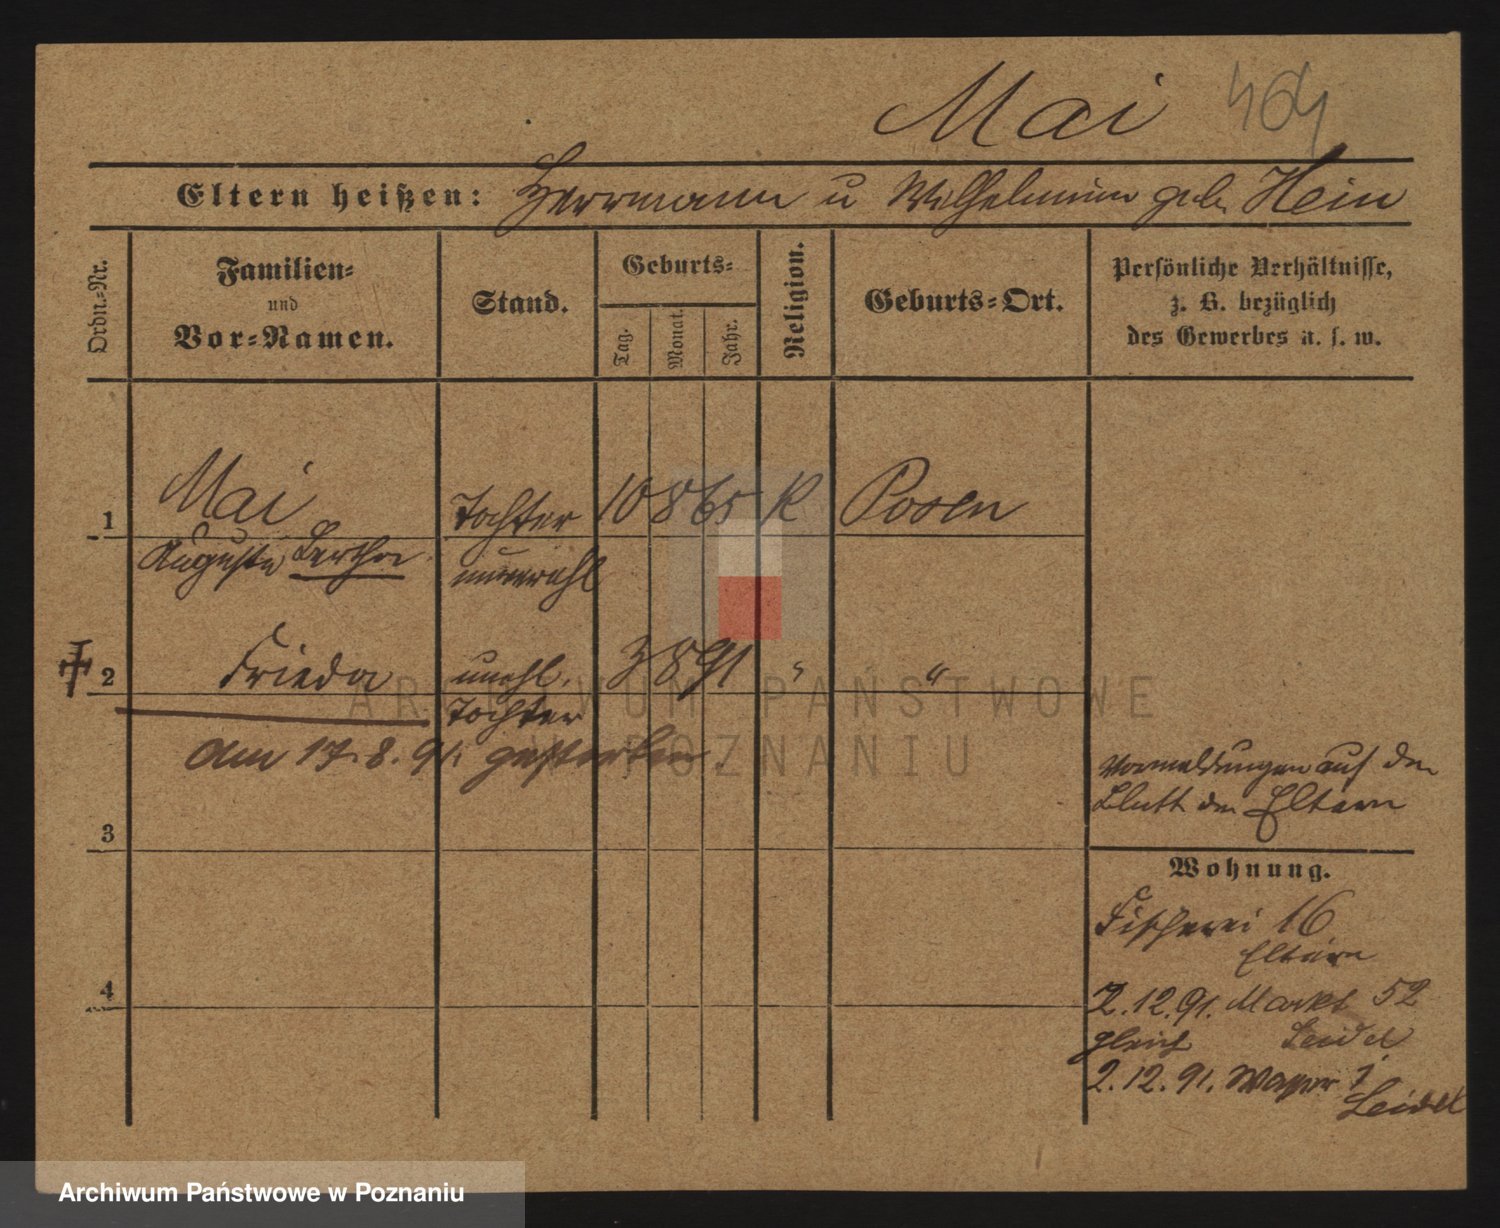 Mai 464
Eltern heißen: Herrmann u Wilhelmine geb. Hein
Ordn.-Nr.
Familien-
und
Vor-Namen.
Stand.
Geburts-
Tag.
Monat.
Jahr.
Religion.
Geburts-Ort.
Persönliche Verhältnisse,
z. B. bezüglich
des Gewerbes u. s. w.
1 Mai Tochter 10 8 65 K Posen
Auguste Bertha unverehl
2 Frieda unehl. 3 8 91 " "
Tochter
am 17.8.91. gestorben.
ARCHIWUM PAŃSTWOWE
W POZNANIU
Vormeldungen auf dem
Blatt der Eltern
3
Wohnung.
Fischerei 16
Eltern
4
2.12.91. Markt 52
gleich Seidel
2.12.91. 1
Seidel
Archiwum Państwowe w Poznaniu